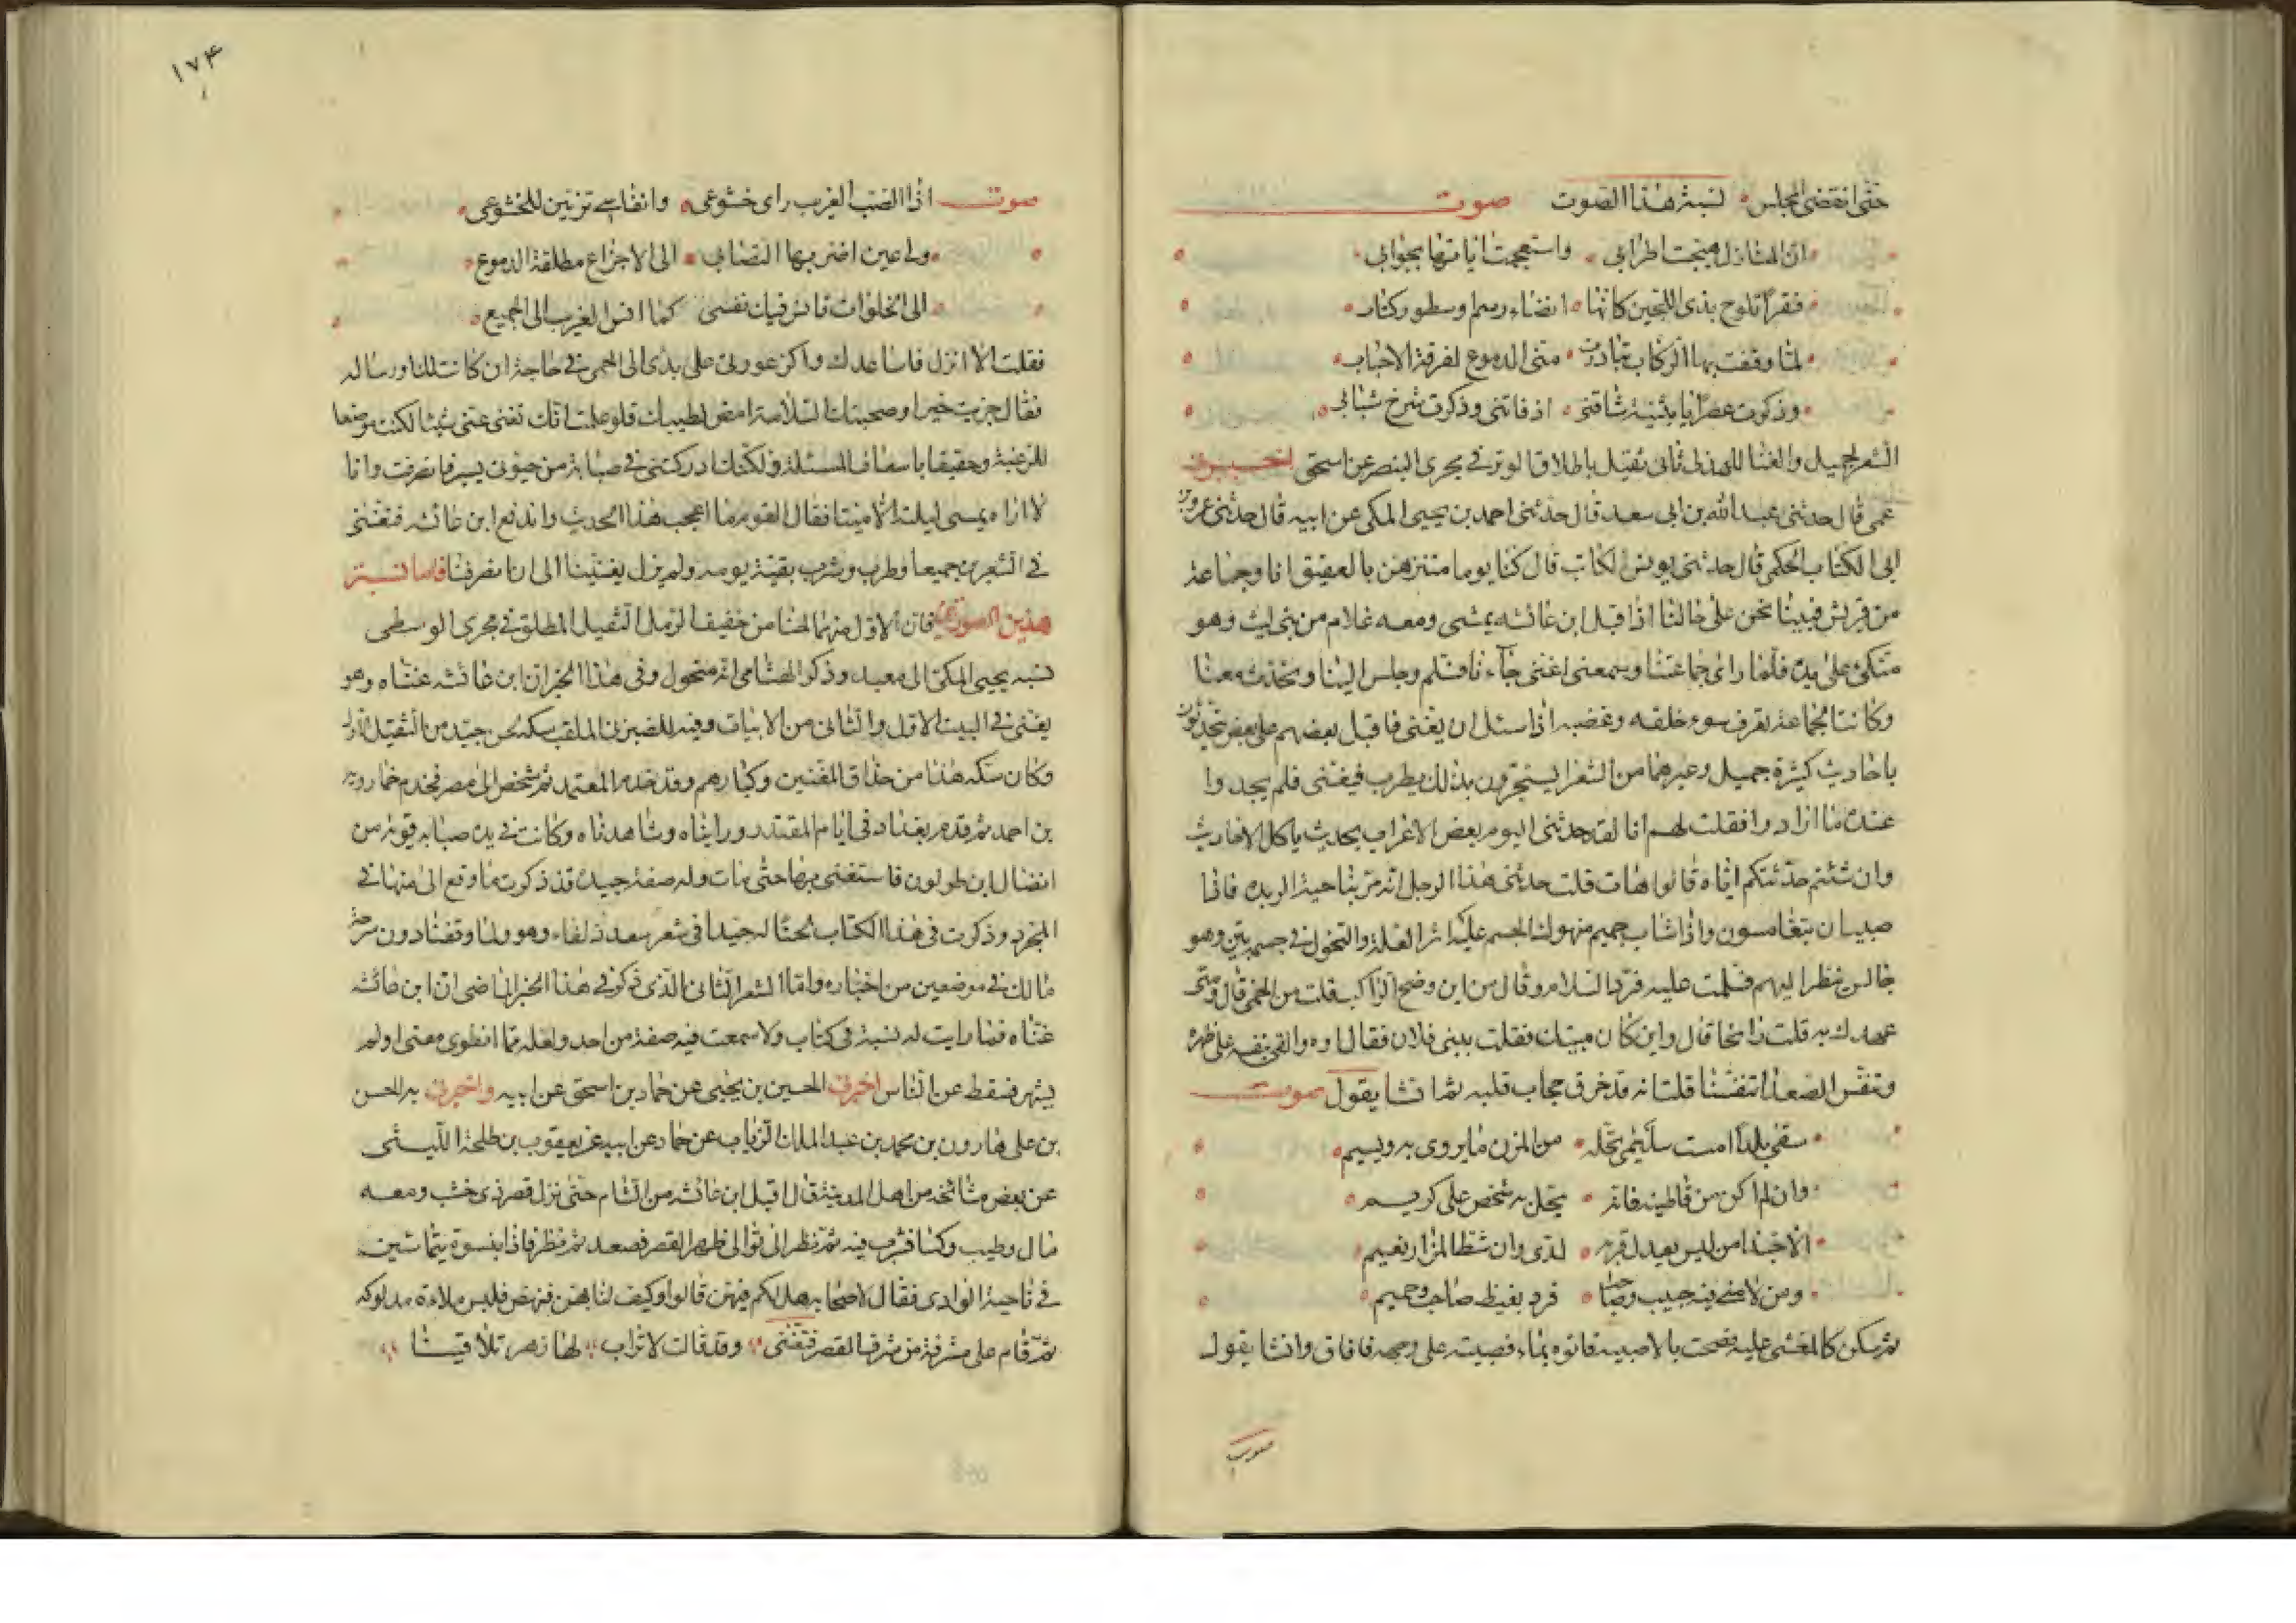 حتى انقضى المجلس نسبة هذا الصوت صوت
ان المنازل هيجت اطرابي واستعجمت اياتها بجوابي
فقرا تلوح بذى اللجين كانها انضاء رسم وسطور كتاب
لما وقفت بها الركاب تبادرت منى الدموع لفرقة الاحباب
وذكرت عصرا يا بثينة شاقنى اذ فاتنى وذكرت شرخ شبابي
الشعر لجميل والغناء للهذلى ثانى ثقيل باطلاق الوتر فى مجرى البنصر عن اسحق
عمى قال حدثنى عبد الله بن ابى سعد قال حدثنى احمد بن يحيى المكى عن ابيه قال حدثنى عمرو بن
ابى الكتاب الحكمى قال حدثنى يونس الكاتب قال كنا يوما متنزهين بالعقيق انا وجماعة
من قريش فبينا نحن على حالنا اذ اقبل ابن عائشه يمشى ومعه غلام من بنى ليث وهو
متكئ على يده فلما راى جماعتنا وسمعنى اغنى جاءنا فسلم وجلس الينا وتحدث معنا
وكانت الجماعة تعرف سوء خلقه وغضبه اذا سئل ان يغنى فاقبل بعضهم على بعض يتحدثون
باحاديث كثيرة جميل وغيرهما من الشعرا يستجرون بذلك يطرب فيغنى فلم يجدوا
عنده ما ارادوا فقلت لهم انا لقد حدثنى اليوم بعض الاعراب بحديث ياكل الاحاديث
وان شئتم حدثتكم اياه قالوا هات قلت حدثنى هذا الرجل انه مر بناحية الربده فاذا
صبيان يتغامسون واذا شاب جميم منهوك الجسم عليه اثر العلة والنحول فى جسمه بين وهو
جالس ينظر اليهم فسلمت عليه فرد السلام وقال من اين وضح الراكب قلت من الحمى قال ومتى
عهدك به قلت رائحا قال واين كان مبيتك فقلت ببنى فلان فقال اوه والقى بنفسه على ظهره
وتنفس الصعدا تنفسا قلت انه قد خرق حجاب قلبه ثم انشا يقول صوت
سقى بلدا امست سليمى تحله من المزن ما يروى به ويسيم
وان لم اكن من قاطنيه فانه يحل به شخص على كريم
الا حبذا من ليس يعدل قربه لدى وان شط المزار نعيم
ومن لامنى فيه حبيب وصاحب فرد بغيظ صاحب وحميم
ثم سكن كالمغشى عليه فصحت بالاصبيه فاتوه بماء فصببته على وجهه فافاق وانشا يقول
صوت
١٧٤
صوت اذا الصب الغريب راى خشوعى وانفاسى تزين للخشوعى
ولى عين اضر بها التصابى الى الاجزاع مطلقة الدموع
الى الخلوات تانس فيك نفسى كما انس الغريب الى الجميع
فقلت الا انزل فاساعدك واكر عودى على بدى الى الحمى فى حاجة ان كانت لك او رساله
فقال جزيت خيرا وصحبتك السلامة امض لطيبك فلو علمت انك تغنى عنى شيئا لكنت موضعا
للرغبة وحقيقا باسعاف المسئلة ولكنك ادركتنى فى صبابة من حيوتى يسيره فانصرفت وانا
لا اراه يمسى ليلته الا ميتا فقال القوم ما اعجب هذا الحديث واندفع ابن عائشه فتغنى
فى الشعرين جميعا وطرب وشرب بقية يومه ولم يزل يغنينا الى ان انصرفنا فاما نسبة
هذين الصوتين فان الاول منهما لحنا من خفيف الرمل الثقيل المطلق فى مجرى الوسطى
نسبه يحيى المكى الى معبد وذكر الهشامى انه منحول وفى هذا الخبر ان ابن عائشه غناه وهو
يغنى فى البيت الاول والثانى من الابيات وفيه للضيزنى الملقب بسكه لحن جيد من الثقيل الاول
وكان سكه هذا من حذاق المغنين وكبارهم وقد خدم المعتمد ثم شخص الى مصر فخدم خمارويه
بن احمد ثم قدم بغداد فى ايام المقتدر ورايناه وشاهدناه وكانت فى يده صبابه قويه من
افضال ابن طولون فاستغنى بها حتى مات وله صنعة جيده قد ذكرت ما وقع الى منها فى
المجرد وذكرت فى هذا الكتاب لحنا له جيدا فى شعر سعد ذلفاء وهو ولما وقفنا دون سرحة
مالك فى موضعين من اخباره واما الشعر الثانى الذى ذكر فى هذا الخبر الماضى ان ابن عائشه
غناه فما رايت له نسبة فى كتاب ولا سمعت فيه صنعة من احد ولعله مما انطوى معنى او لم
يشهر فسقط عن الناس اخبرنى الحسين بن يحيى عن حماد بن اسحق عن ابيه واخبرنى به الحسن
بن على هارون بن محمد بن عبد الملك الزيات عن حماد عن ابيه عن يعقوب بن طلحة الليثى
عن بعض مشائخه من اهل المدينة قال اقبل ابن عائشه من الشام حتى نزل قصر ذى خشب ومعه
مال وطيب وكسا فشرب فيه ثم تطرق الى ظهر القصر فصعد ثم نظر فاذا بنسوة يتماشين
فى ناحية الوادى فقال لاصحابه هل لكم فيهن قالوا وكيف لنا بهن فنهض فلبس ملاءة مدلوكه
ثم قام على شرفة من شرف القصر فتغنى وقد قالت لاتراب لها زهر تلاقينا